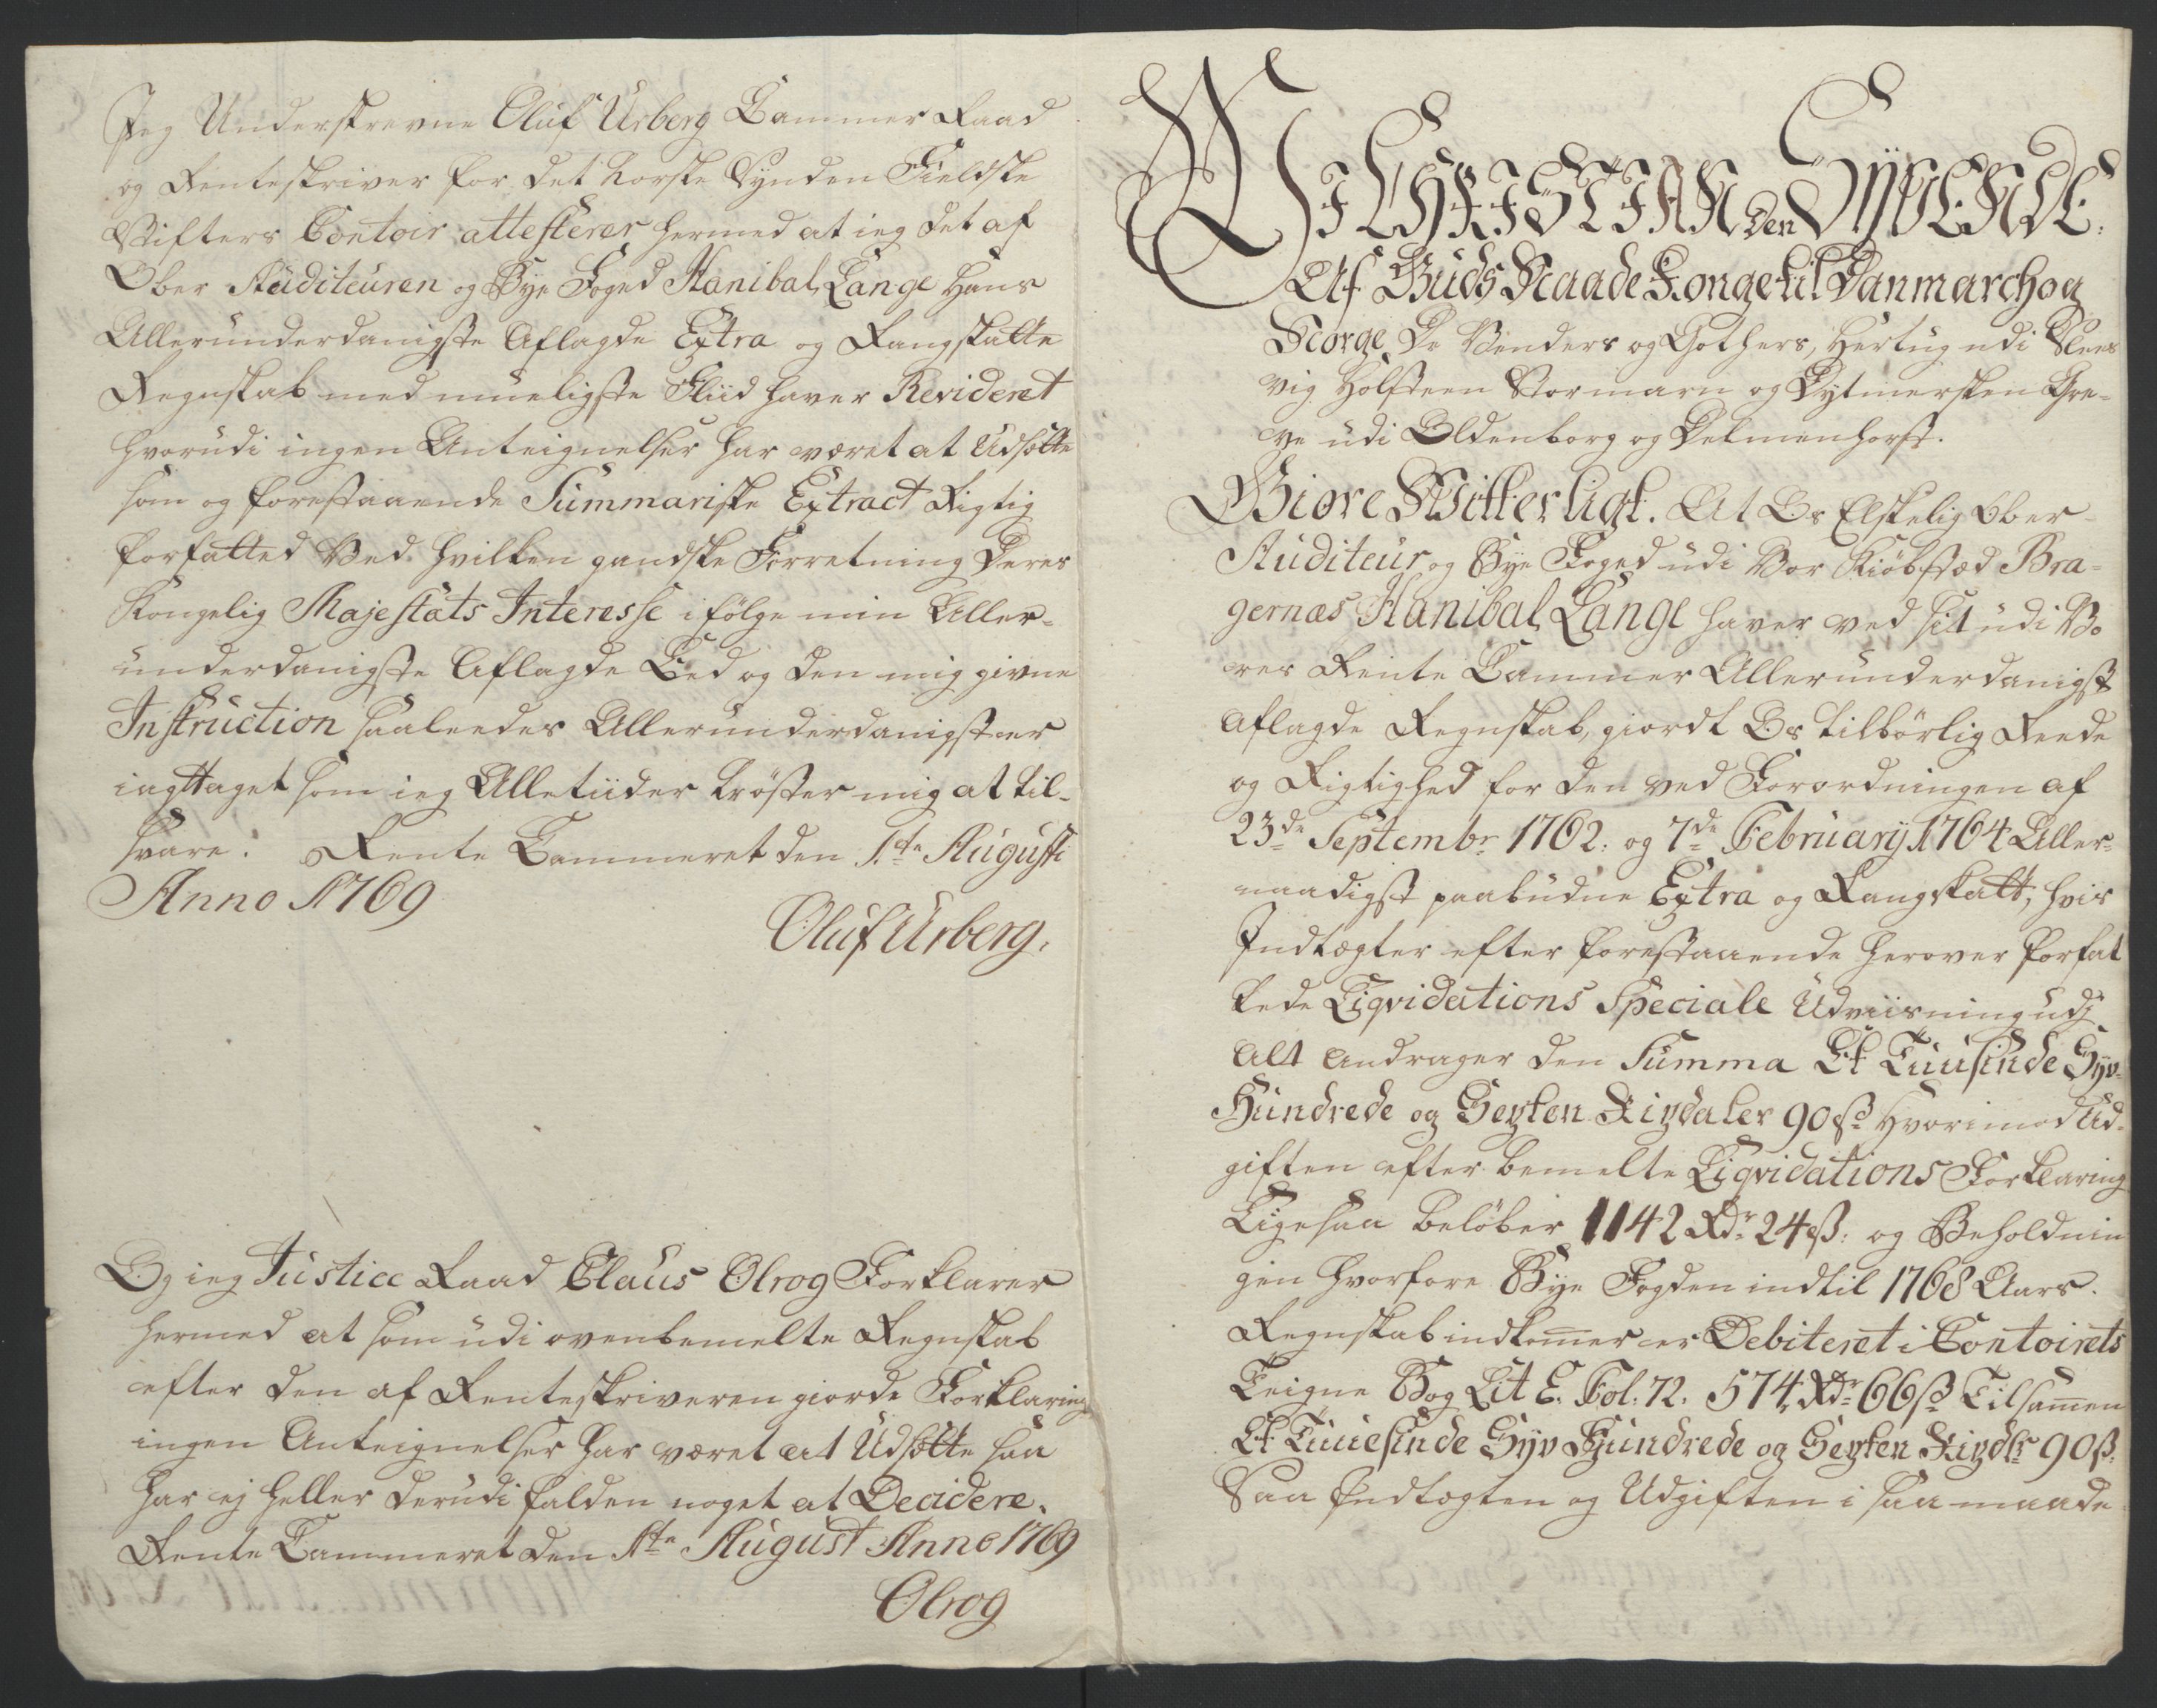 Jeg Underskrevne Oluf Urberg Cammer Raad
og Renteskriver for det Norske Synden Fieldske
Stifters Contoir attesterer hermed at ieg det af
Ober Auditeuren og Bye Foged Hanibal Lange Hans
Allerunderdanigste Aflagde Extra og Rangskatte
Regnskab med mueligste Fliid haver Revideret
hvorudi ingen Anteignelser har været at Udsætte
som og forestaaende Summariske Extract Rigtig
forfatted Ved hvilken gandske Forretning Deres
Kongelig Majestäts Interesse i følge min Aller-
underdanigste Aflagde Eed og den mig givne
Instruction saaleedes Allerunderdanigst er
iagttaget som ieg Alletiider trøster mig at til-
svare. Rente Cammeret den 1.ste Augusti
Anno 1769
Oluf Urberg.
Og ieg Justice Raad Claus Olrog Forklarer
hermed at som udi ovenbemelte Regnskab
efter den af Renteskriveren giorde Forklaring
ingen Anteignelser har været at Udsætte saa
har ej heller derudi falden noget at Decidere.
Rente Cammeret den 1ste August Anno 1769
Olrog
VI CHRISTIAN den SYVENDE.
Af Guds Naade Konge til Danmarch og
Norge De Venders og Gothers, Hertug udi Slees
vig Holsteen Stormarn og Dytmersken Gre-
ve udi Oldenborg og Delmenhorst.
Giöre Witterligt. At Os Elskelig Ober
Auditeur og Bye Foged udi Vor Kiøbstæd Bra-
gernæs Hanibal Lange haver ved sit udi Vo
res Rente Cammer Allerunderdanigst
Aflagde Regnskab, giordt Os tilbørlig Reede
og Rigtighed for den ved Forordningen af
23de Septembr 1762. og 7de February 1764 Aller-
naadigst paabudne Extra og Rangskatt, hvis
Indtægter efter forestaaende herover forfat
tede Liqvidations Speciale Udviisning udj
Alt Andrager den Summa Et Tuusinde Syv-
Hundrede og Seyten Rixdaler 90 ß Hvorimod Ud-
giften efter bemelte Liqvidations Forklaring
Ligesaa beløber 1142 Rdr 24 ß: og Beholdnin
gen hvorfore Bye Fogden indtil 1768 Aars.
Regnskab indkom̄er er Debiteret i Contoirets
Teigne Bog Lit E. Fol: 72. 574 Rdr 66 ß Tilsam̄en
Et Tuuesinde Syv Hundrede og Seyten Rixdlr 90 ß.
Saa Indtægten og Udgiften i saa maade